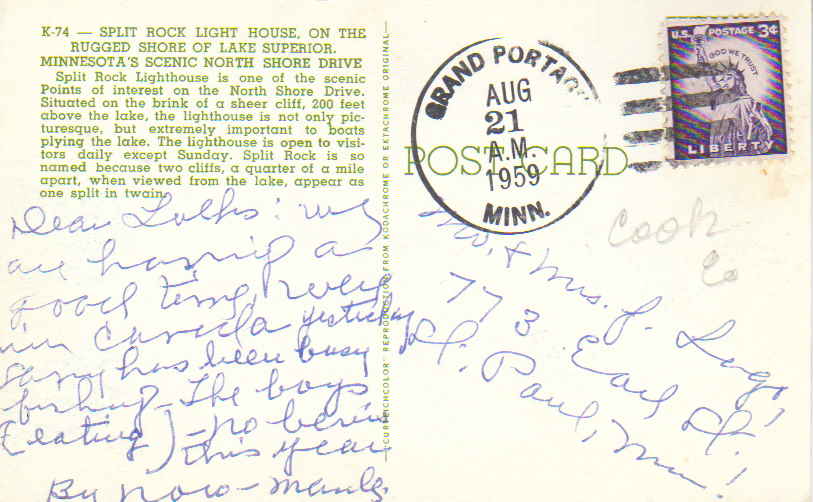 K-74 — SPLIT ROCK LIGHT HOUSE, ON THE
RUGGED SHORE OF LAKE SUPERIOR.
MINNESOTA'S SCENIC NORTH SHORE DRIVE
Split Rock Lighthouse is one of the scenic
Points of interest on the North Shore Drive.
Situated on the brink of a sheer cliff, 200 feet
above the lake, the lighthouse is not only pic-
turesque, but extremely important to boats
plying the lake. The lighthouse is open to visi-
tors daily except Sunday. Split Rock is so
named because two cliffs, a quarter of a mile
apart, when viewed from the lake, appear as
one split in twain.
Dear Folks: we
are having a
good time, were
in Canada yesterday
has been busy
fishing - The boys
(eating) - no
this year
By now -
"CURTEICHCOLOR" REPRODUCTION FROM KODACHROME OR EKTACHROME ORIGINAL
POST CARD
GRAND PORTAGE
AUG
21
A.M.
1959
MINN.
U.S. POSTAGE 3¢
IN GOD WE TRUST
LIBERTY
Cook
Co
Mr. & Mrs. J.
773 Earl St.
St. Paul, Minn!